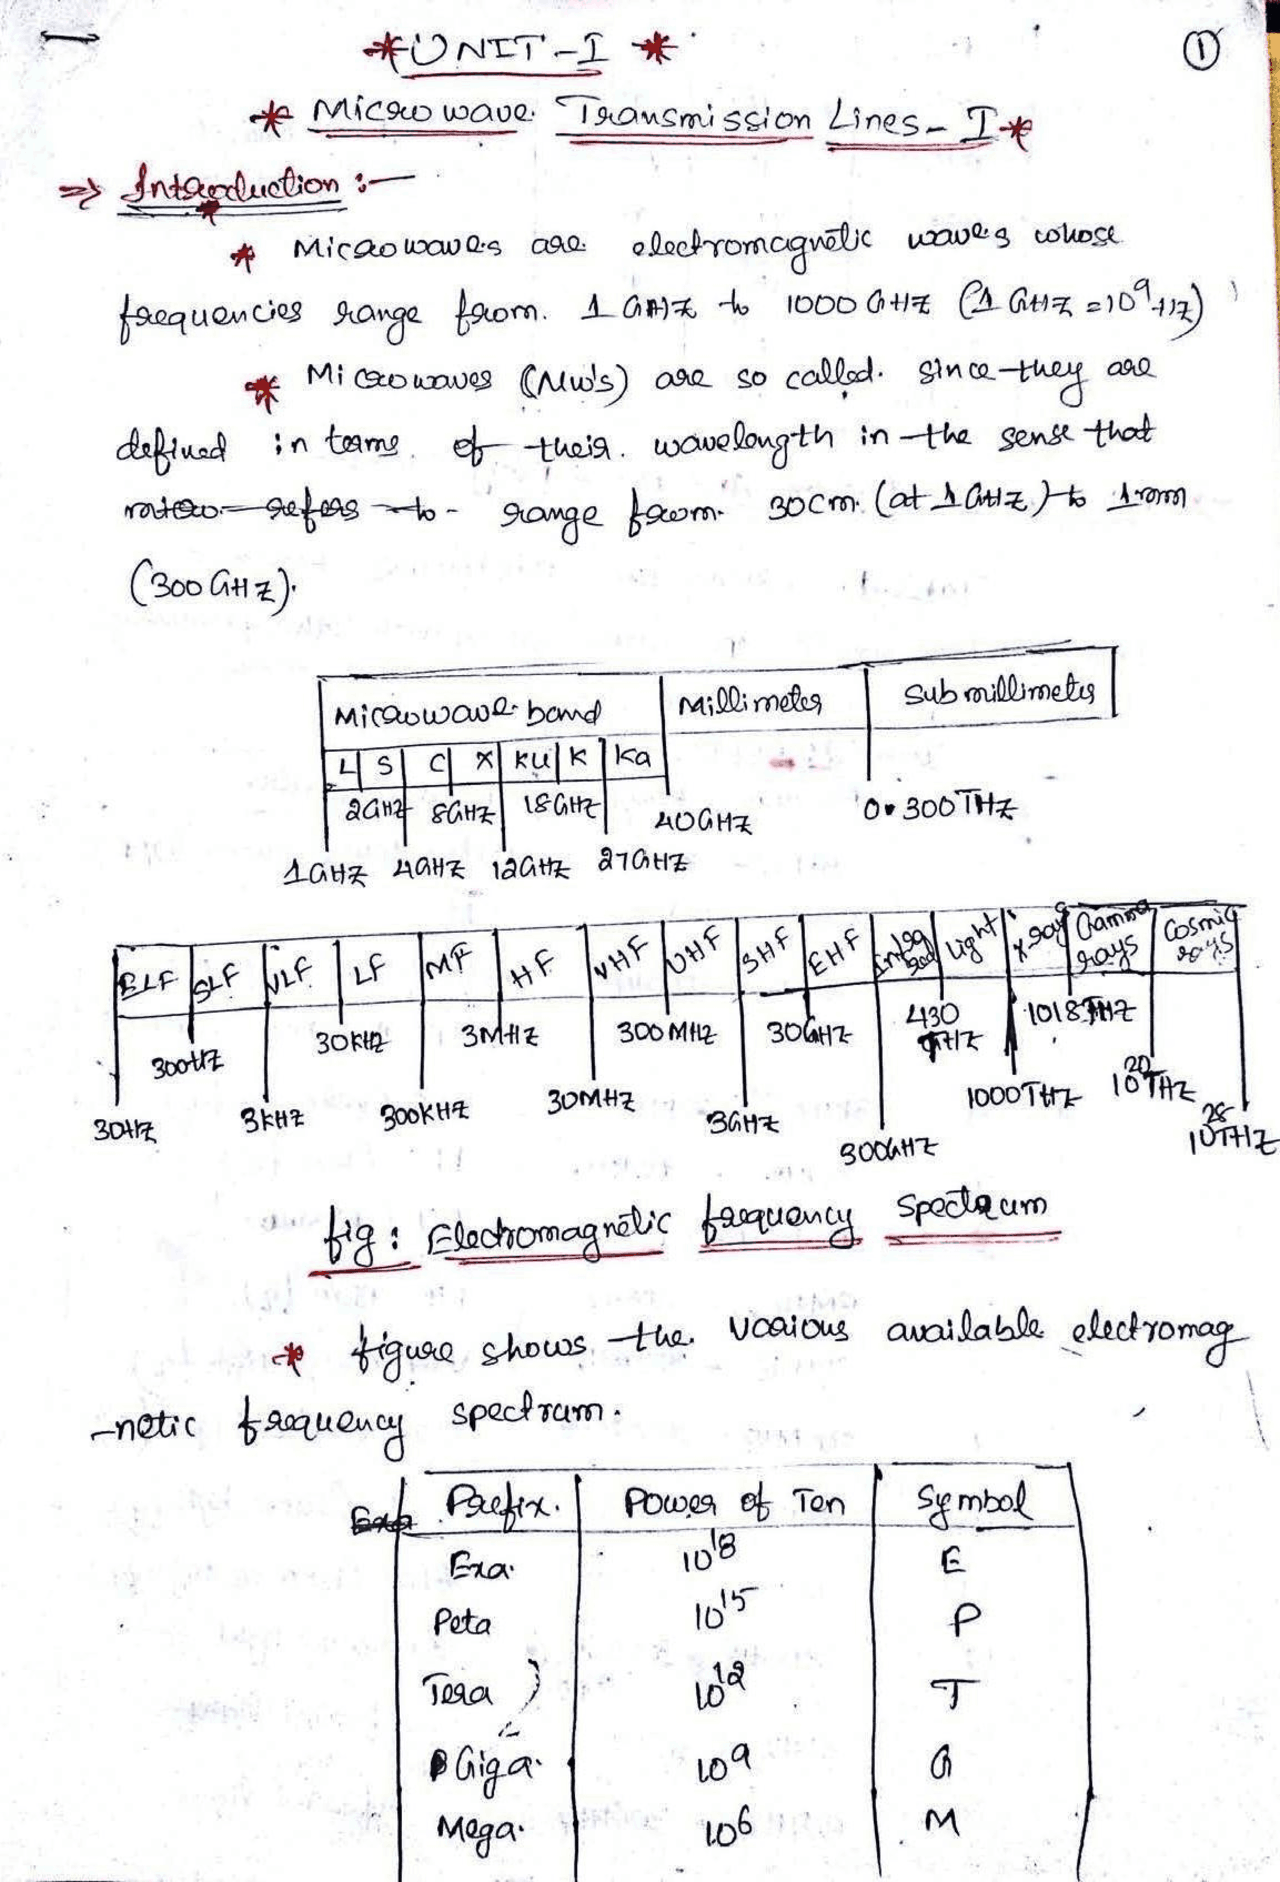 ①
*UNIT-I*
* Microwave Transmission Lines-I*
⇒ Introduction :-
* Microwaves are electromagnetic waves whose
frequencies range from. 1 GHZ to 1000 GHZ (1 GHZ = 10⁹ HZ)
* Microwaves (MW's) are so called. since they are
defined in terms of their. wavelength in the sense that
refers to - range from. 30cm. (at 1 GHZ) to 1mm
(300 GHZ).
Microwave band Millimeter Submillimeter
L S C X Ku K Ka
2GHZ 8GHZ 18GHZ 40GHZ 0.300THZ
1GHZ 4GHZ 12GHZ 27GHZ
ELF SLF VLF LF MF HF VHF UHF SHF EHF Infra red Light x ray Gamma rays Cosmic rays
300HZ 30KHZ 3MHZ 300MHZ 30GHZ 430 THZ 1018THZ
30HZ 3KHZ 300KHZ 30MHZ 3GHZ 300GHZ 1000THZ 10²⁰THZ 10²⁸THZ
fig: Electromagnetic frequency Spectrum
* figure shows the. various available electromag
-netic frequency spectrum.
Prefix. Power of Ten Symbol
Exa. 10¹⁸ E
Peta 10¹⁵ P
Tera 10¹² T
Giga. 10⁹ G
Mega. 10⁶ M